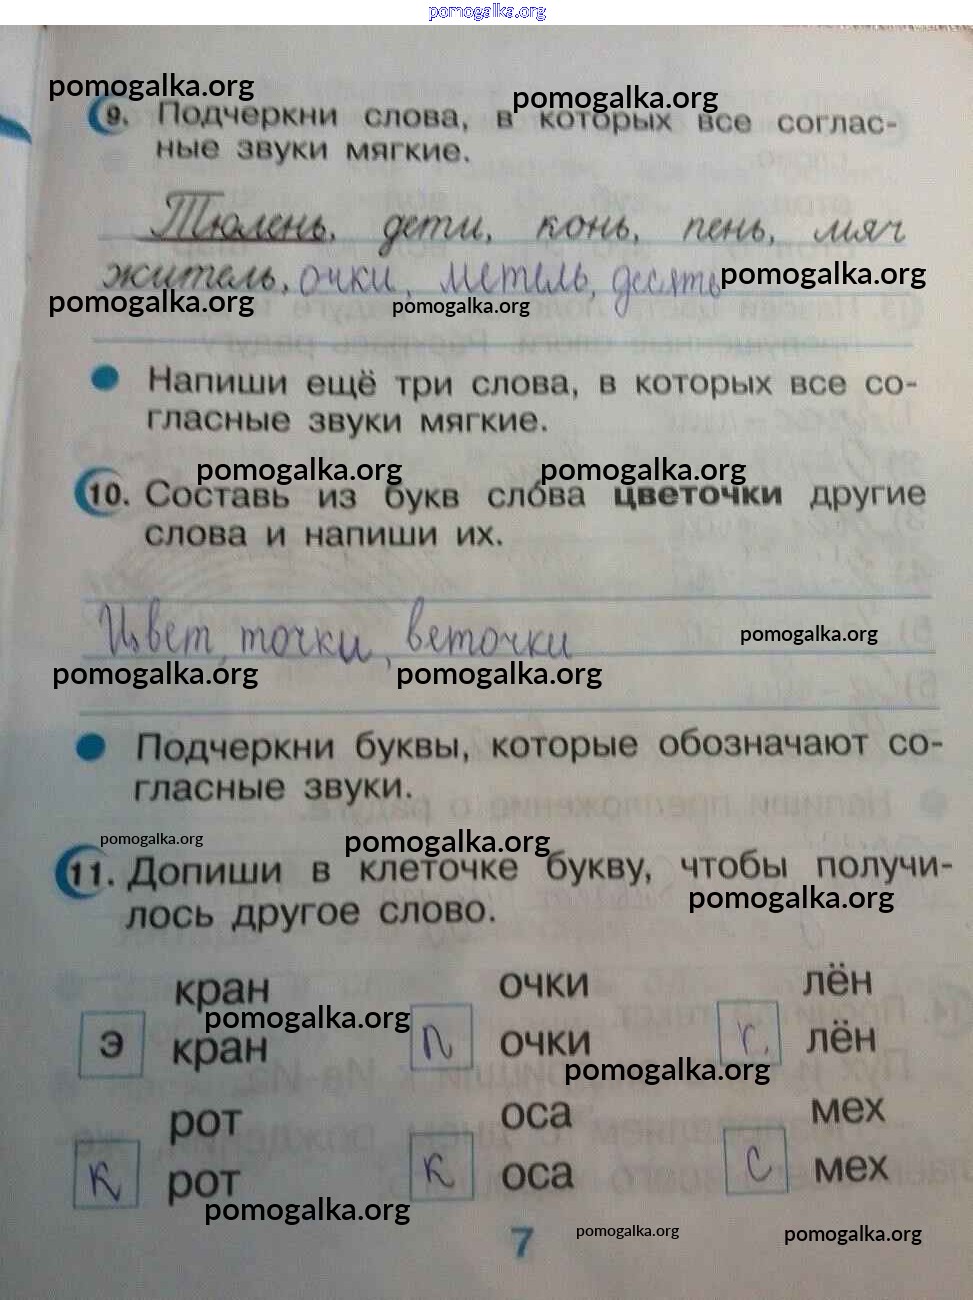 pomogalka.org
pomogalka.org
pomogalka.org
9. Подчеркни слова, в которых все соглас-
ные звуки мягкие.
Тюлень, дети, конь, пень, мяч
житель, очки, метель, десять
pomogalka.org
pomogalka.org
pomogalka.org
Напиши ещё три слова, в которых все со-
гласные звуки мягкие.
pomogalka.org
pomogalka.org
10. Составь из букв слова цветочки другие
слова и напиши их.
Цвет, точки, веточки
pomogalka.org
pomogalka.org
pomogalka.org
Подчеркни буквы, которые обозначают со-
гласные звуки.
pomogalka.org
pomogalka.org
11. Допиши в клеточке букву, чтобы получи-
лось другое слово.
pomogalka.org
кран очки лён
pomogalka.org
э кран п очки г. лён
pomogalka.org
рот оса мех
к рот к оса с мех
pomogalka.org
7
pomogalka.org
pomogalka.org